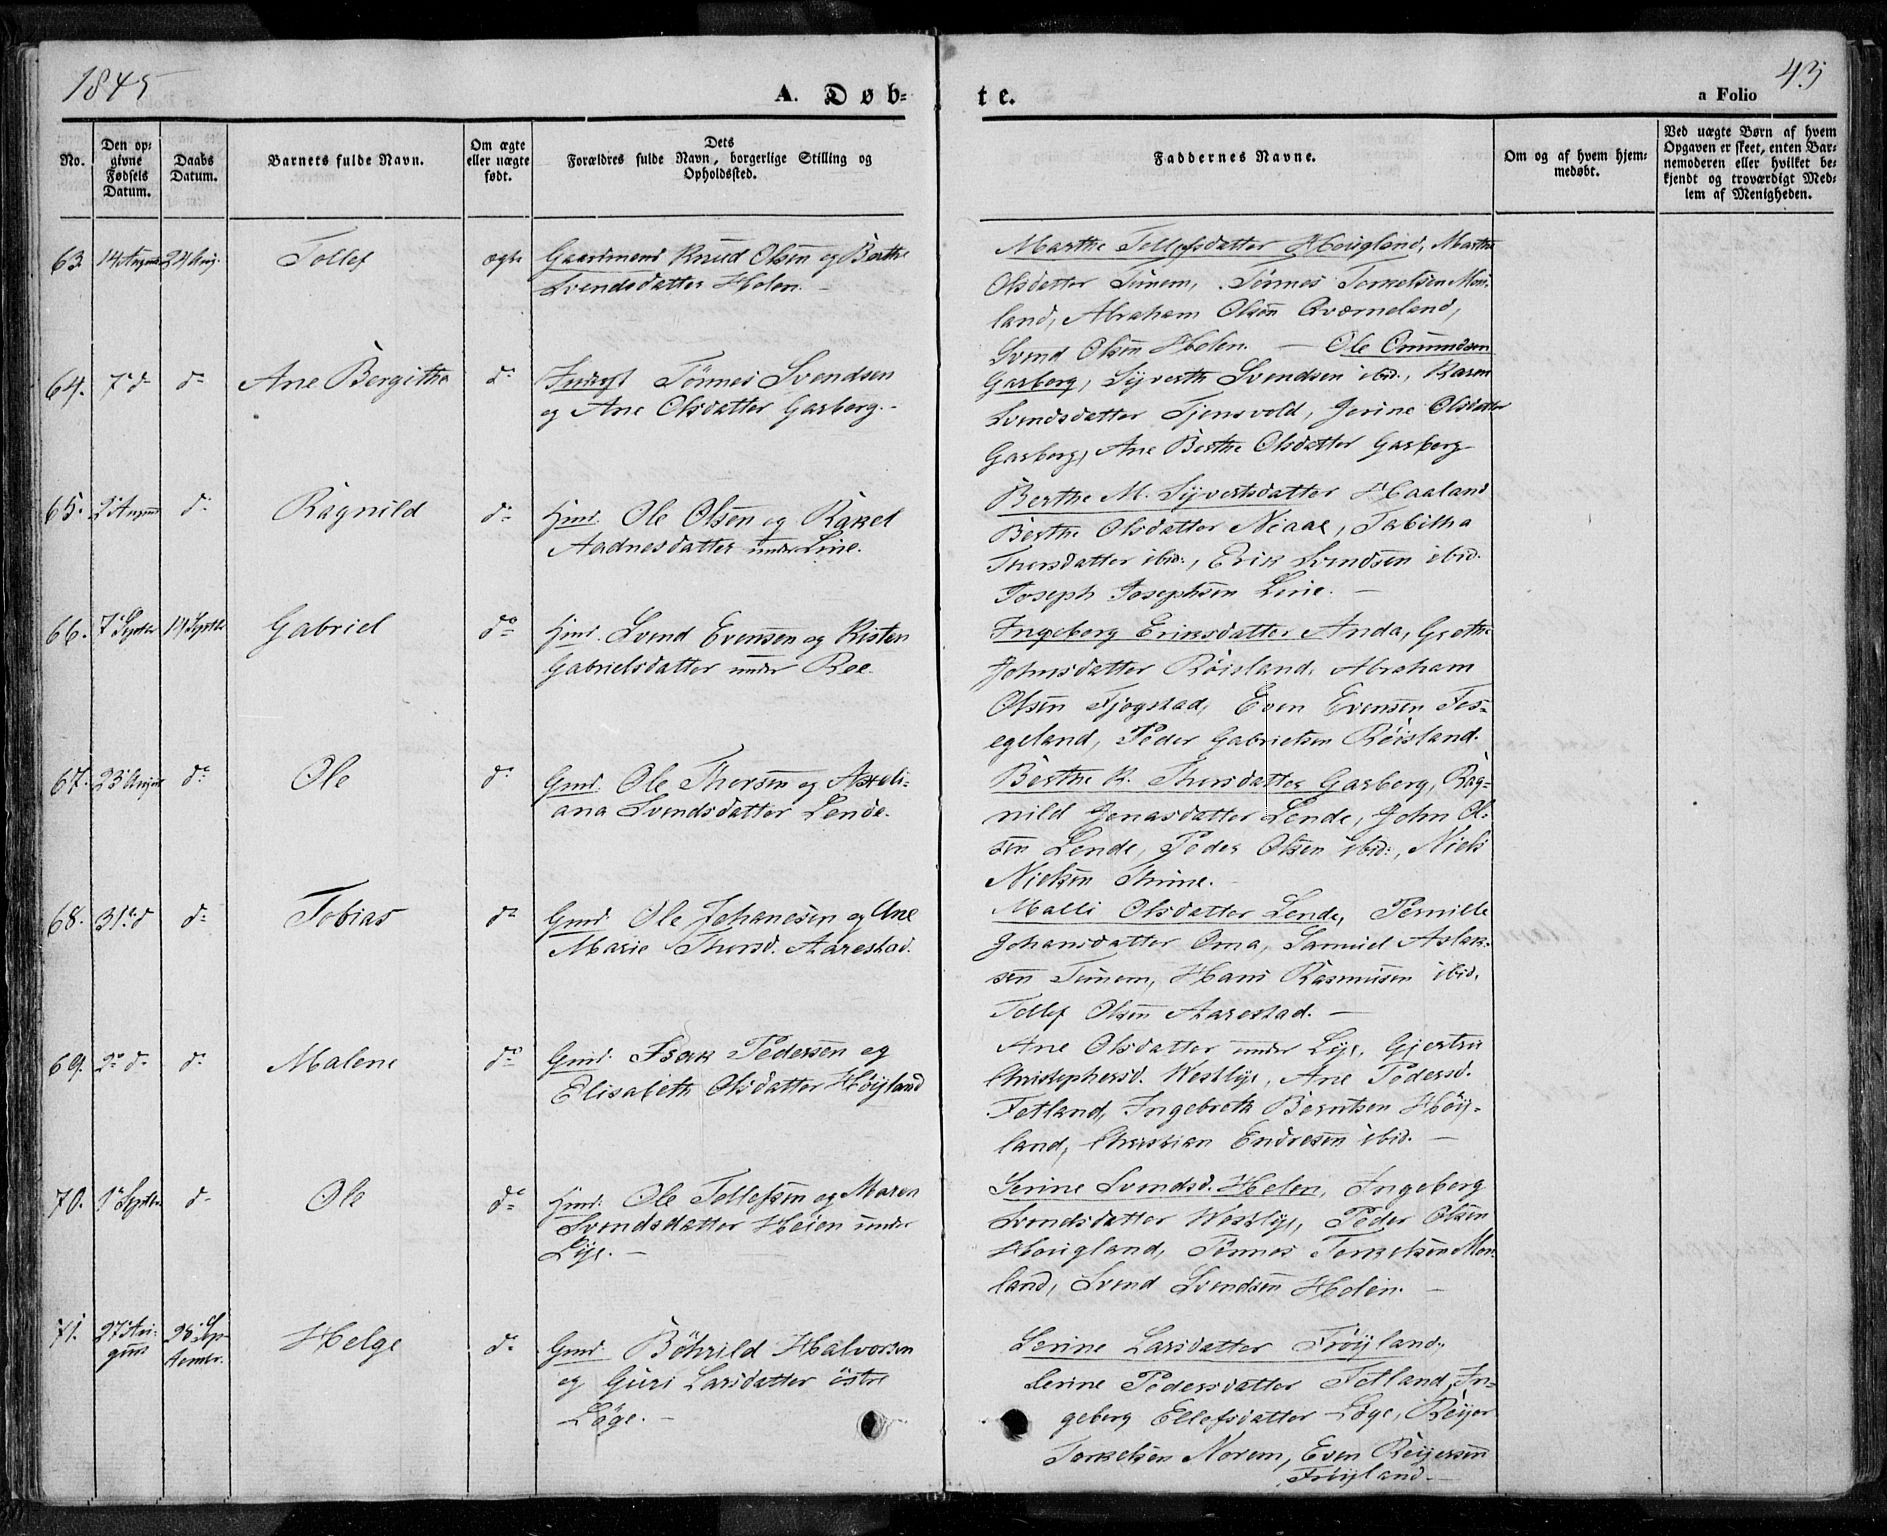 1845
43
A. Døb=
te.
a Folio
No.
Den op=
givne
Fødsels
Datum.
Daabs
Datum.
Barnets fulde Navn.
Om ægte
eller uægte
født.
Dets
Forældres fulde Navn, borgerlige Stilling og
Opholdssted.
Faddernes Navne.
Om og af hvem hjem=
medøbt.
Ved uægte Børn af hvem
Opgaven er skeet, enten Bar=
nemoderen eller hvilket be=
kjendt og troværdigt Med=
lem af Menigheden.
63. 14 August 24 Aug. Tollef ægte Gaardmand Knud Olsen og Berthe
Svendsdatter Helen.
Marthe Tollefsdatter Hougland, Marthe
Olsdatter Tunem, Tønnes Torkelsen Mou-
land, Abraham Olsen Qværneland,
Svend Olsen Helen. —
64. 7de do do Ane Bergithe do Tønnes Svendsen
og Ane Olsdatter Garborg.
Ole Omundsen
Garborg, Syverth Svendsen ibid., Karen
Svendsdatter Tjensvold, Jorine Olsdatter
Garborg, Ane Berthe Olsdatter Garborg
65. 2 August do Ragnild do Hmd. Ole Olsen og Rakel
Aadnesdatter under Line.
Berthe M. Syvertsdatter Haaland
Berthe Olsdatter Niaae, Tabitha
Thorsdatter ibid., Erik Svendsen ibid.
Joseph Josephsen Line. —
66. 7 Septbr 14 Septbr Gabriel do Hmd. Svend Evensen og Kisten
Gabrielsdatter under Ree.
Ingeborg Eriksdatter Anda, Grethe
Johnsdatter Røisland, Abraham
Olsen Fjogstad, Even Evensen Fos-
egeland, Peder Gabrielsen Røisland.
67. 23 August do Ole do Gmd. Ole Thorsen og Axeli-
ana Svendsdatter Lende.
Berthe K. Thorsdatter Garborg, Rag-
nild Jonasdatter Lende, John Ol-
sen Lende, Peder Olsen ibid., Niels
Nielsen Thime.
68. 31te do do Tobias do Gmd. Ole Johanesen og Ane
Marie Thorsd. Aarestad.
Malli Olsdatter Lende, Pernille
Johansdatter Oma, Samuel Aslak-
sen Tunem, Hans Rasmusen ibid.
Tollef Olsen Aarestad. —
69. 2de do do Malene do Gmd. Isak Pedersen og
Elisabeth Olsdatter Høyland
Ane Olsdatter under Lye, Gjertru
Christophersd. Westlye, Ane Pedersd.
Fetland, Ingebreth Berntsen Høy-
land, Christian Endresen ibid. —
70. 1 Septbr do Ole do Hmd. Ole Tollefsen og Maren
Svendsdatter Heien under
Lye. —
Serine Svendsd. Helen, Ingeborg
Svendsdatter Westlye, Peder Olsen
Hougland, Tønnes Torkelsen Mou-
land, Svend Svendsen Helen. —
71. 27 Au-
gust 28 Sep-
tember. Helge do Gmd. Böhrild Halvorsen
og Guri Larsdatter östre
Løge. —
Serine Larsdatter Frøyland,
Serine Pedersdatter Fetland, In-
geborg Ellefsdatter Løge, Reyer
Torkelsen Norem, Even Reyersen
Frøyland. —